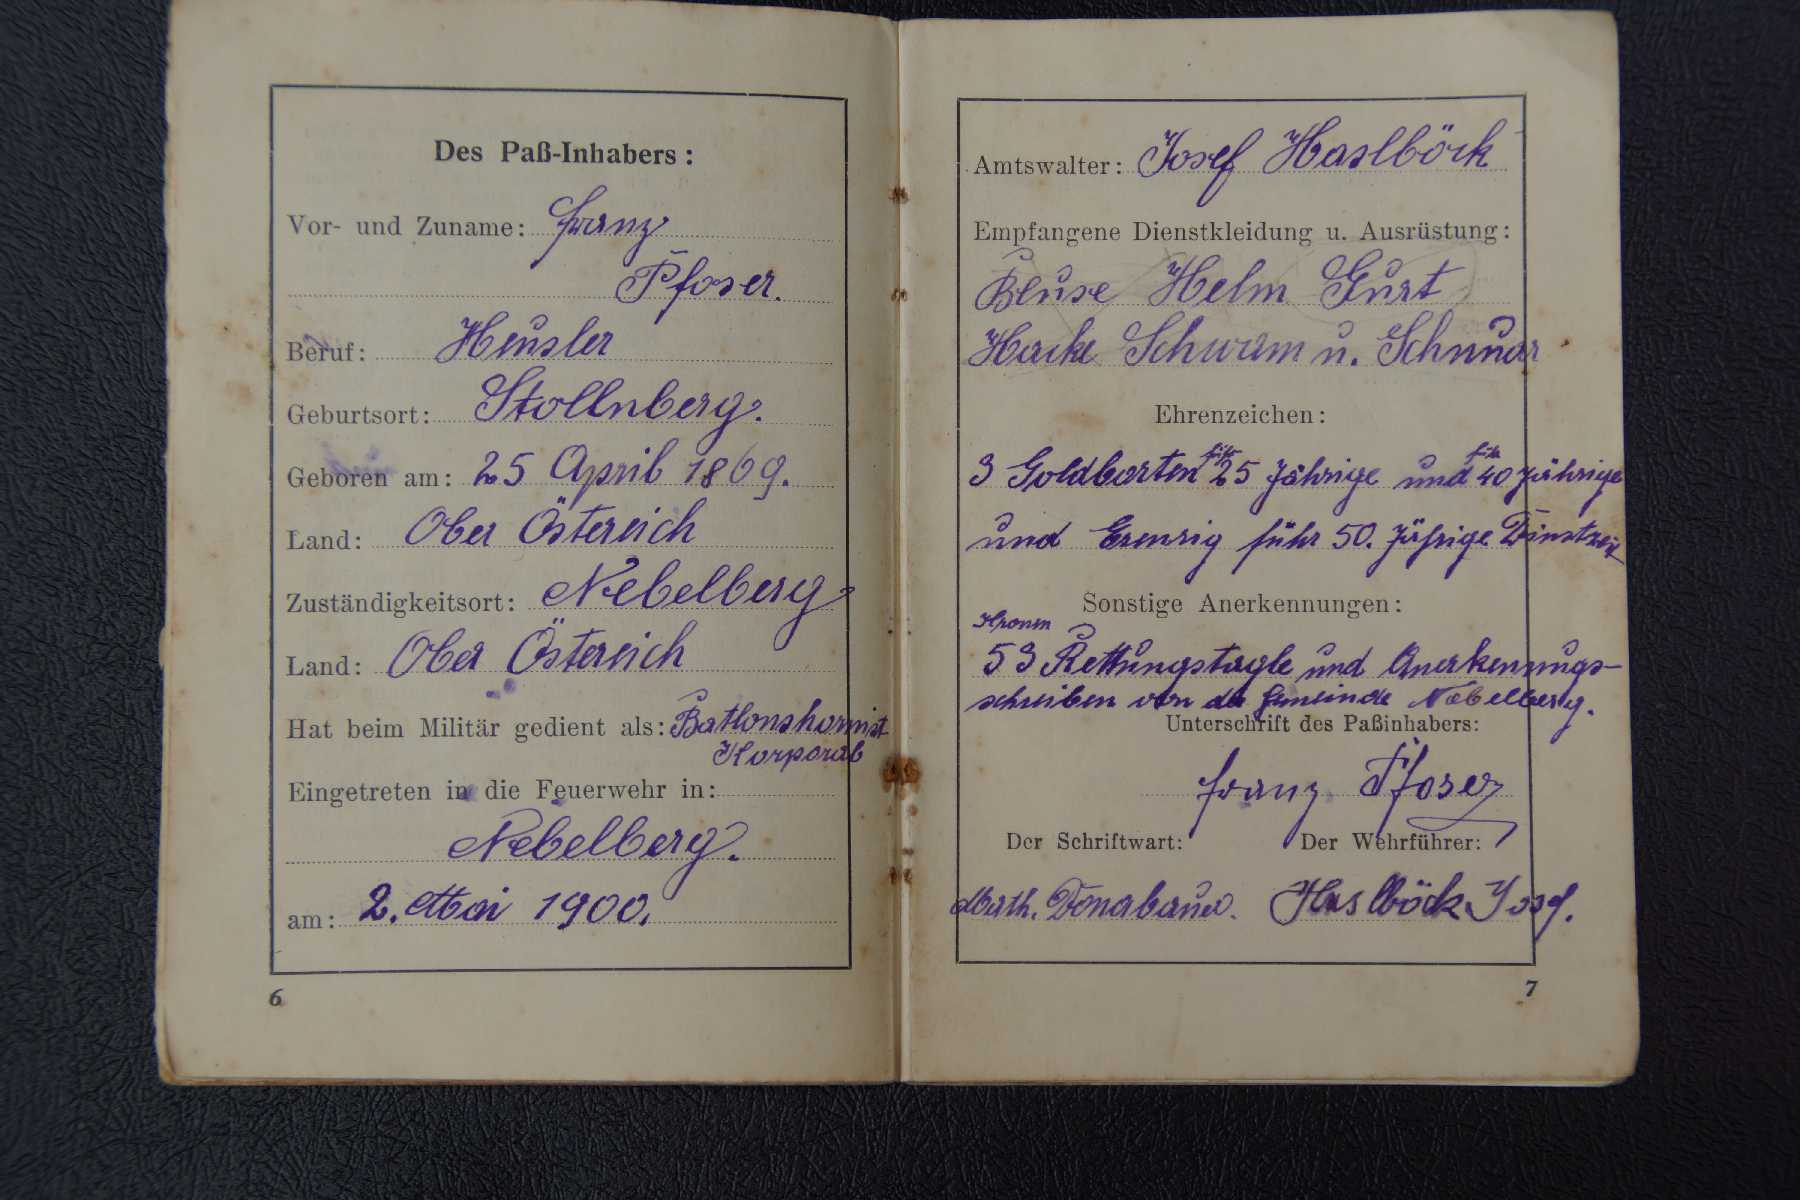 Des Paß-Inhabers:
Vor- und Zuname: Franz
Pfoser.
Beruf: Heusler
Geburtsort: Stollnberg.
Geboren am: 25 April 1869.
Land: Ober Östereich
Zuständigkeitsort: Nebelberg
Land: Ober Östereich
Hat beim Militär gedient als: Batlonshornist
Korporal
Eingetreten in die Feuerwehr in:
Nebelberg.
am: 2. Mai 1900.
6
Amtswalter: Josef Haslböck
Empfangene Dienstkleidung u. Ausrüstung:
Bluse Helm Gurt
Hacke Schwam u. Schnuar
Ehrenzeichen:
für für
3 Goldborten 25 Jährige und 40 jährige
und führ 50. Jährige Dinstzeit
Sonstige Anerkennungen:
Kronen
53 Rettungstagle und Anerkennungs-
schreiben von der Gemeinde Nebelberg.
Unterschrift des Paßinhabers:
Franz Pfoser
Der Schriftwart: Der Wehrführer:
Math. Donabauer. Haslböck Josef.
7